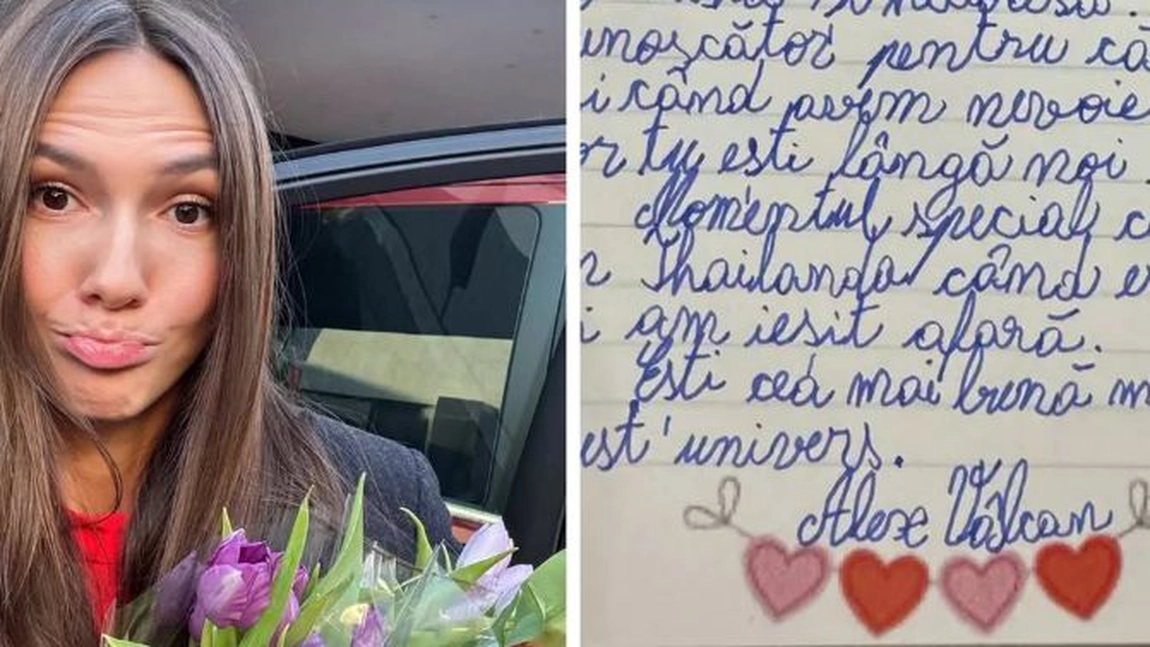 unoscător pentru că
i când avem nevoie
or tu esti lângă noi
Momentul special c
n Thailanda când e
i am iesit afară.
Esti cea mai bună m
est univers.
Alex Vâlcan